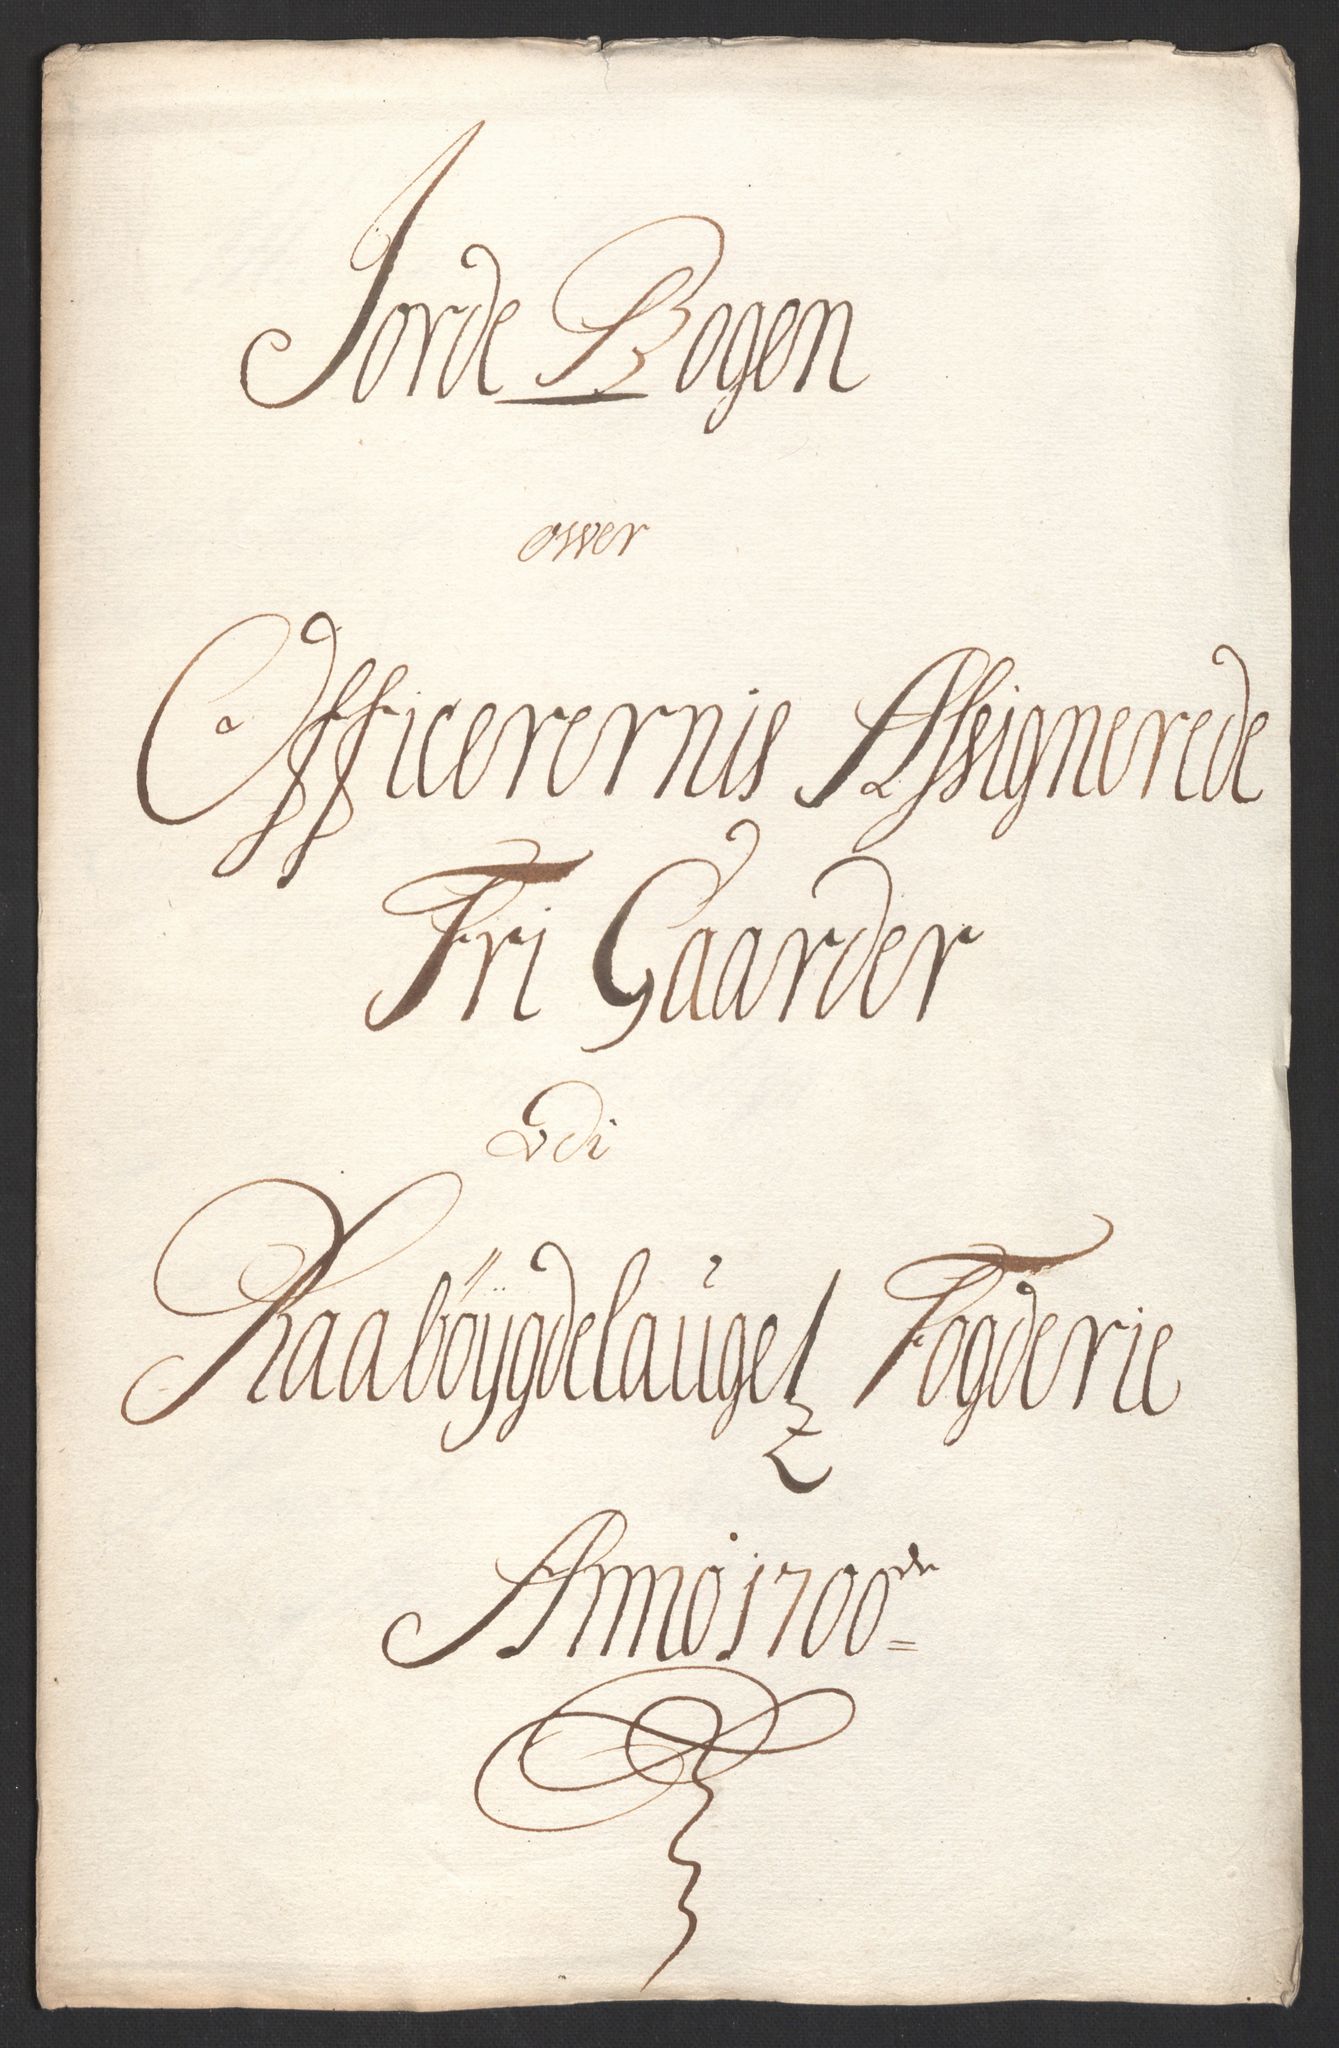 Jorde Bogen
ower
Officerernis Assignerede
Fri Gaarder
Udi
Raabôÿgdelaugetz Fogderie
Anno 1700de